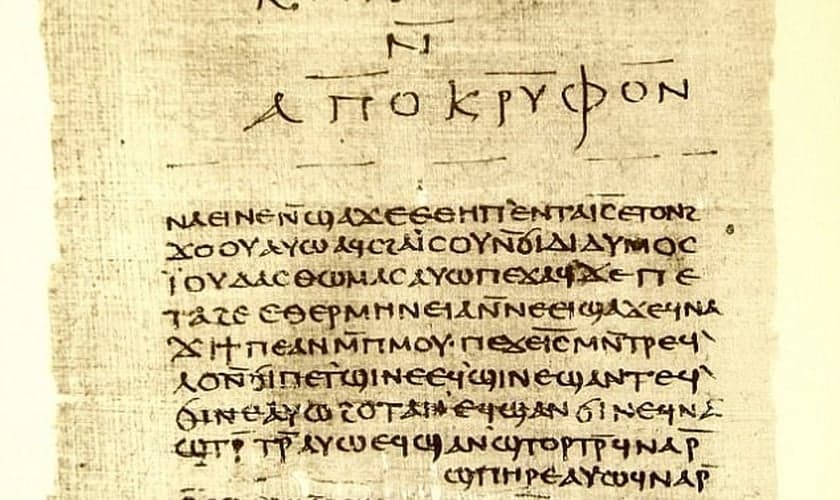 ⲛ̄
ⲁⲡⲟⲕⲣⲩⲫⲟⲛ
ⲛⲁⲉⲓⲛⲉⲛ̄ϣⲁϫⲉⲉⲑⲏⲡ'ⲉⲛⲧⲁⲓ̅ⲥ̅ⲉⲧⲟⲛϩ
ϫⲟⲟⲩⲁⲩⲱⲁϥⲥϩⲁⲓ̈ⲥⲟⲩⲛ̄ϭⲓⲇⲓⲇⲩⲙⲟⲥ
ⲓ̈ⲟⲩⲇⲁⲥⲑⲱⲙⲁⲥⲁⲩⲱⲡⲉϫⲁϥϫⲉⲡⲉ
ⲧⲁϩⲉⲉⲑⲉⲣⲙⲏⲛⲉⲓⲁⲛ̄ⲛⲉⲉⲓϣⲁϫⲉϥⲛⲁ
ϫⲓϯⲡⲉⲁⲛⲙ̄ⲡⲙⲟⲩ·ⲡⲉϫⲉⲓ̅ⲥ̅ⲙⲛ̄ⲧⲣⲉϥ'
ⲗⲟⲛ̄ϭⲓⲡⲉⲧϣⲓⲛⲉⲉϥϣⲓⲛⲉϣⲁⲛⲧⲉϥ'
ϭⲓⲛⲉⲁⲩⲱϩⲟⲧⲁⲛⲉϥϣⲁⲛϭⲓⲛⲉϥⲛⲁ
ϣⲧⲣ̄ⲧⲣ̄ⲁⲩⲱⲉϥϣⲁⲛϣⲧⲟⲣⲧⲣ̄ϥⲛⲁⲣ̄
ϣⲡⲏⲣⲉⲁⲩⲱϥⲛⲁⲣ̄